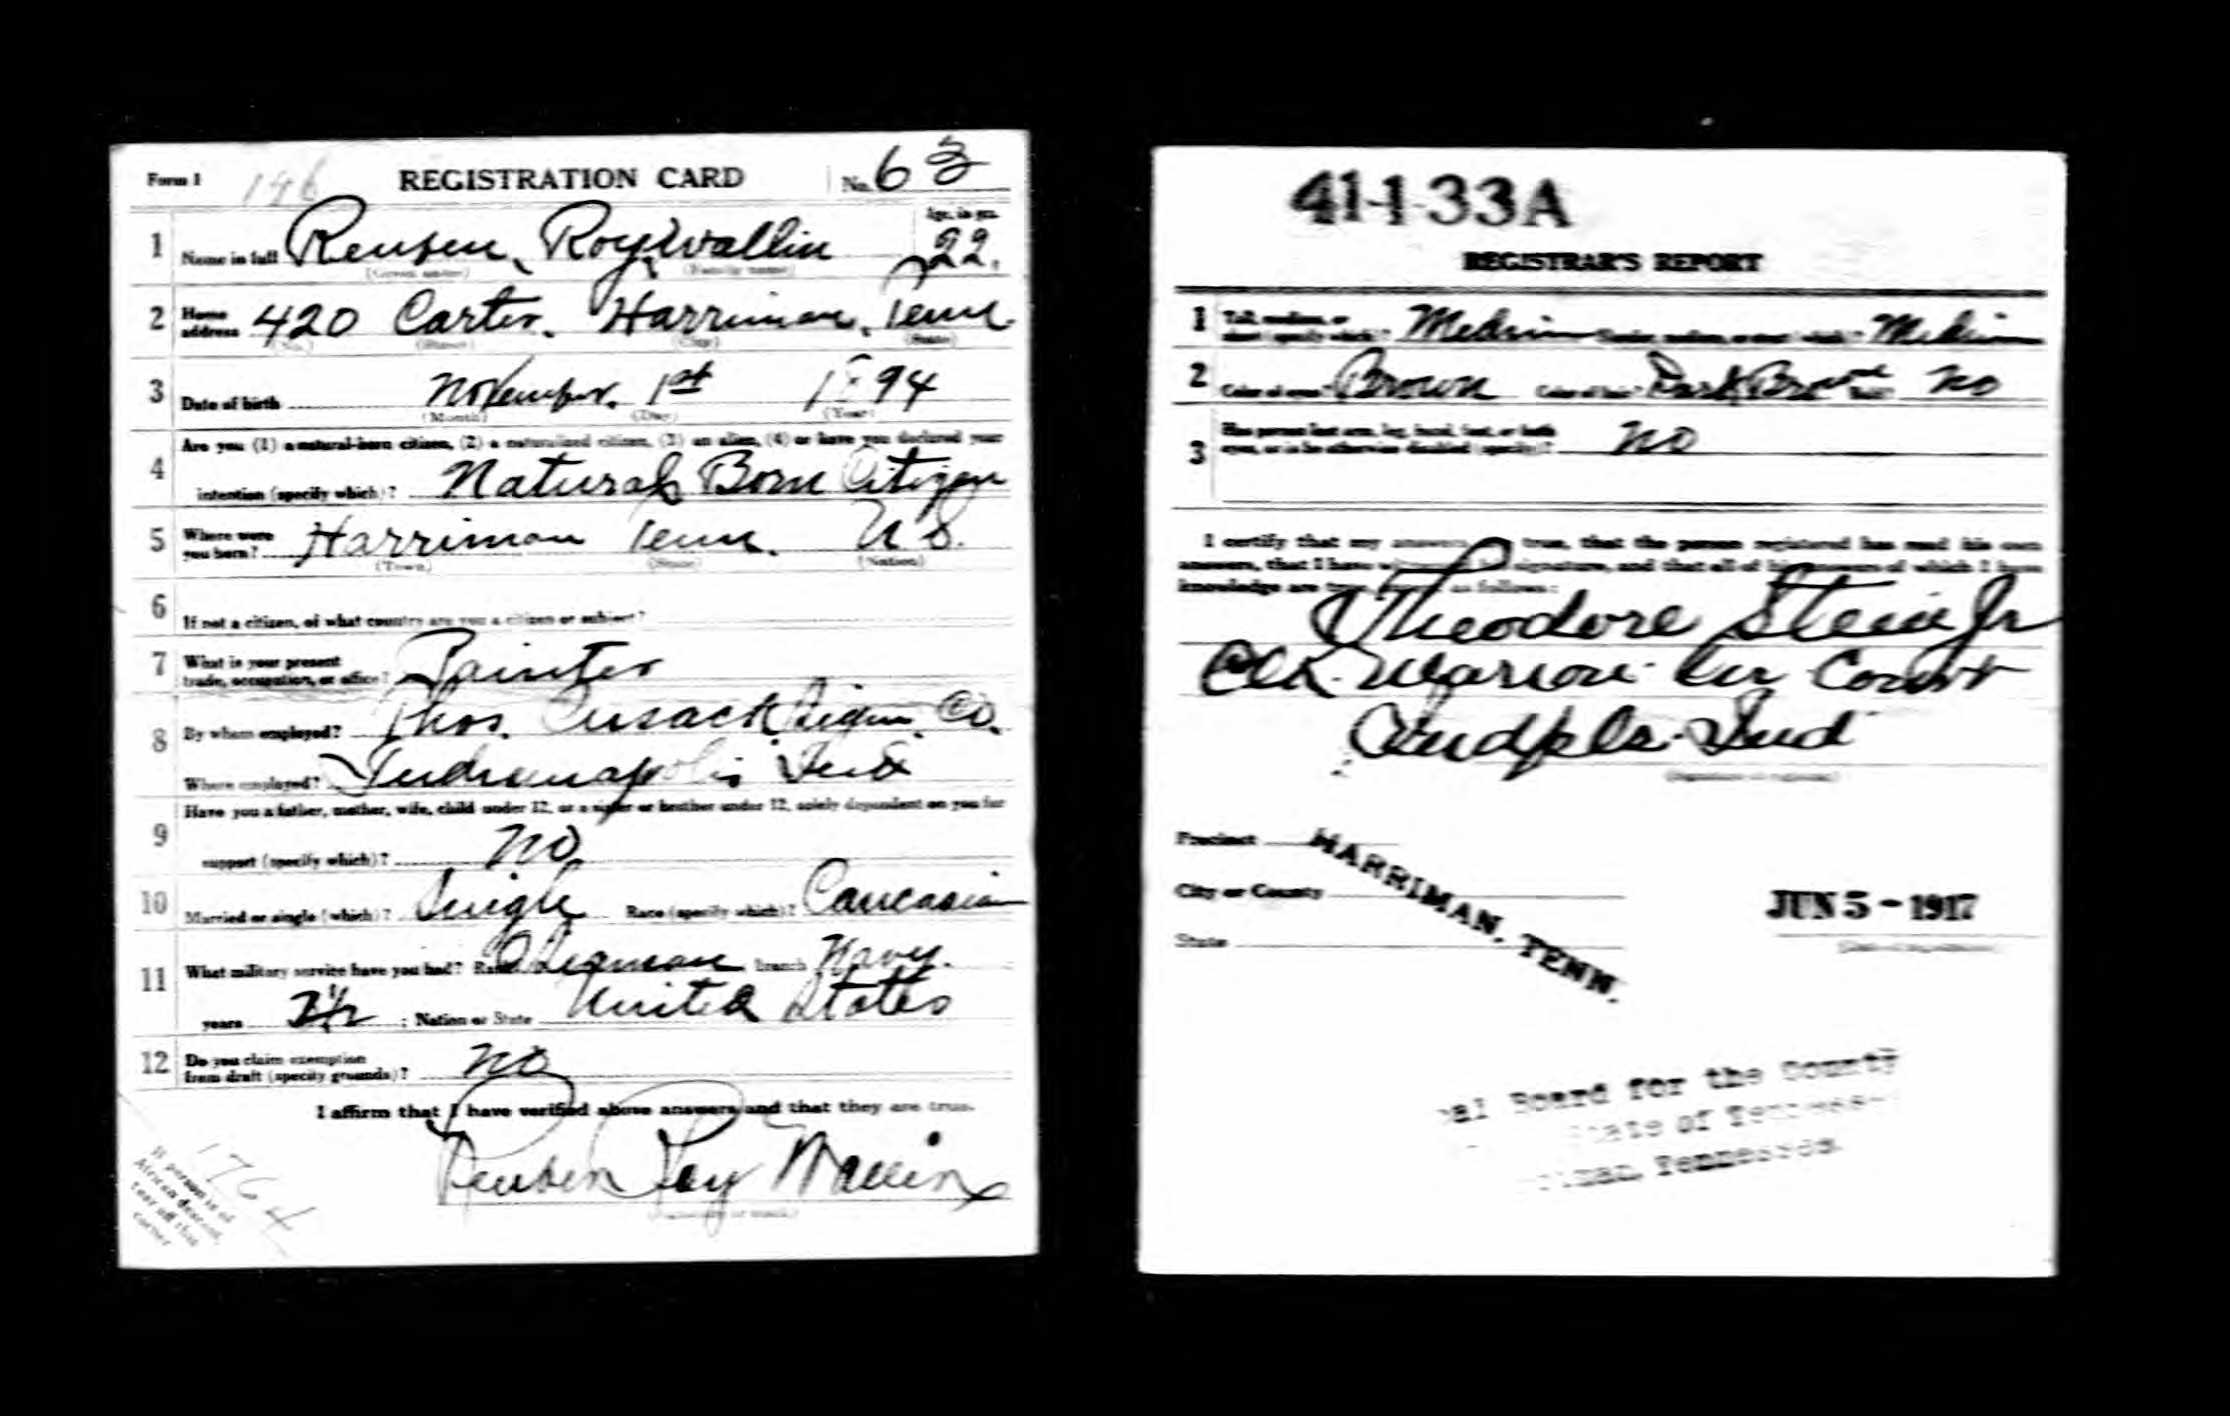 Form 1 196 REGISTRATION CARD No. 63
1 Name in full Reuben, Roy, Wallin Age, in yrs. 22.
(Given name) (Family name)
2 Home address 420 Carter. Harriman, Tenn.
(No.) (Street) (City) (State)
3 Date of birth November. 1st 1894
(Month) (Day) (Year)
Are you (1) a natural-born citizen, (2) a naturalized citizen, (3) an alien, (4) or have you declared your
4 intention (specify which)? Natural Born Citizen
5 Where were you born? Harriman Tenn. U.S.
(Town) (State) (Nation)
6 If not a citizen, of what country are you a citizen or subject?
7 What is your present trade, occupation, or office? Painter
8 By whom employed? Thos. Cusack Sign. Co.
Where employed? Indianapolis Ind
Have you a father, mother, wife, child under 12, or a sister or brother under 12, solely dependent on you for
9 support (specify which)? No
10 Married or single (which)? Single Race (specify which)? Caucasian
11 What military service have you had? Rank branch Navy.
years ; Nation or State United States
12 Do you claim exemption from draft (specify grounds)? No
I affirm that I have verified above answers and that they are true.
Reuben Roy Wallin
(Signature or mark)
1764
If person is of
African descent,
tear off this
corner
41-1-33A
REGISTRAR'S REPORT
1 Tall, medium, or short (specify which)? Medium Slender, medium, or stout (which)? Medium
2 Color of eyes? Brown Color of hair? Dark Brown Bald? No
3 Has person lost arm, leg, hand, foot, or both eyes, or is he otherwise disabled (specify)? No
I certify that my answers true, that the person registered has read his own
answers, that I have signature, and that all of his answers of which I have
knowledge are true, as follows:
Theodore Stein Jr
Clk. Marion Cir Court
Indpls. Ind
(Signature of registrar)
Precinct
City or County
State
HARRIMAN, TENN.
JUN 5 - 1917
(Date of registration)
al Board for the County
State of Tennessee
iman, Tennessee